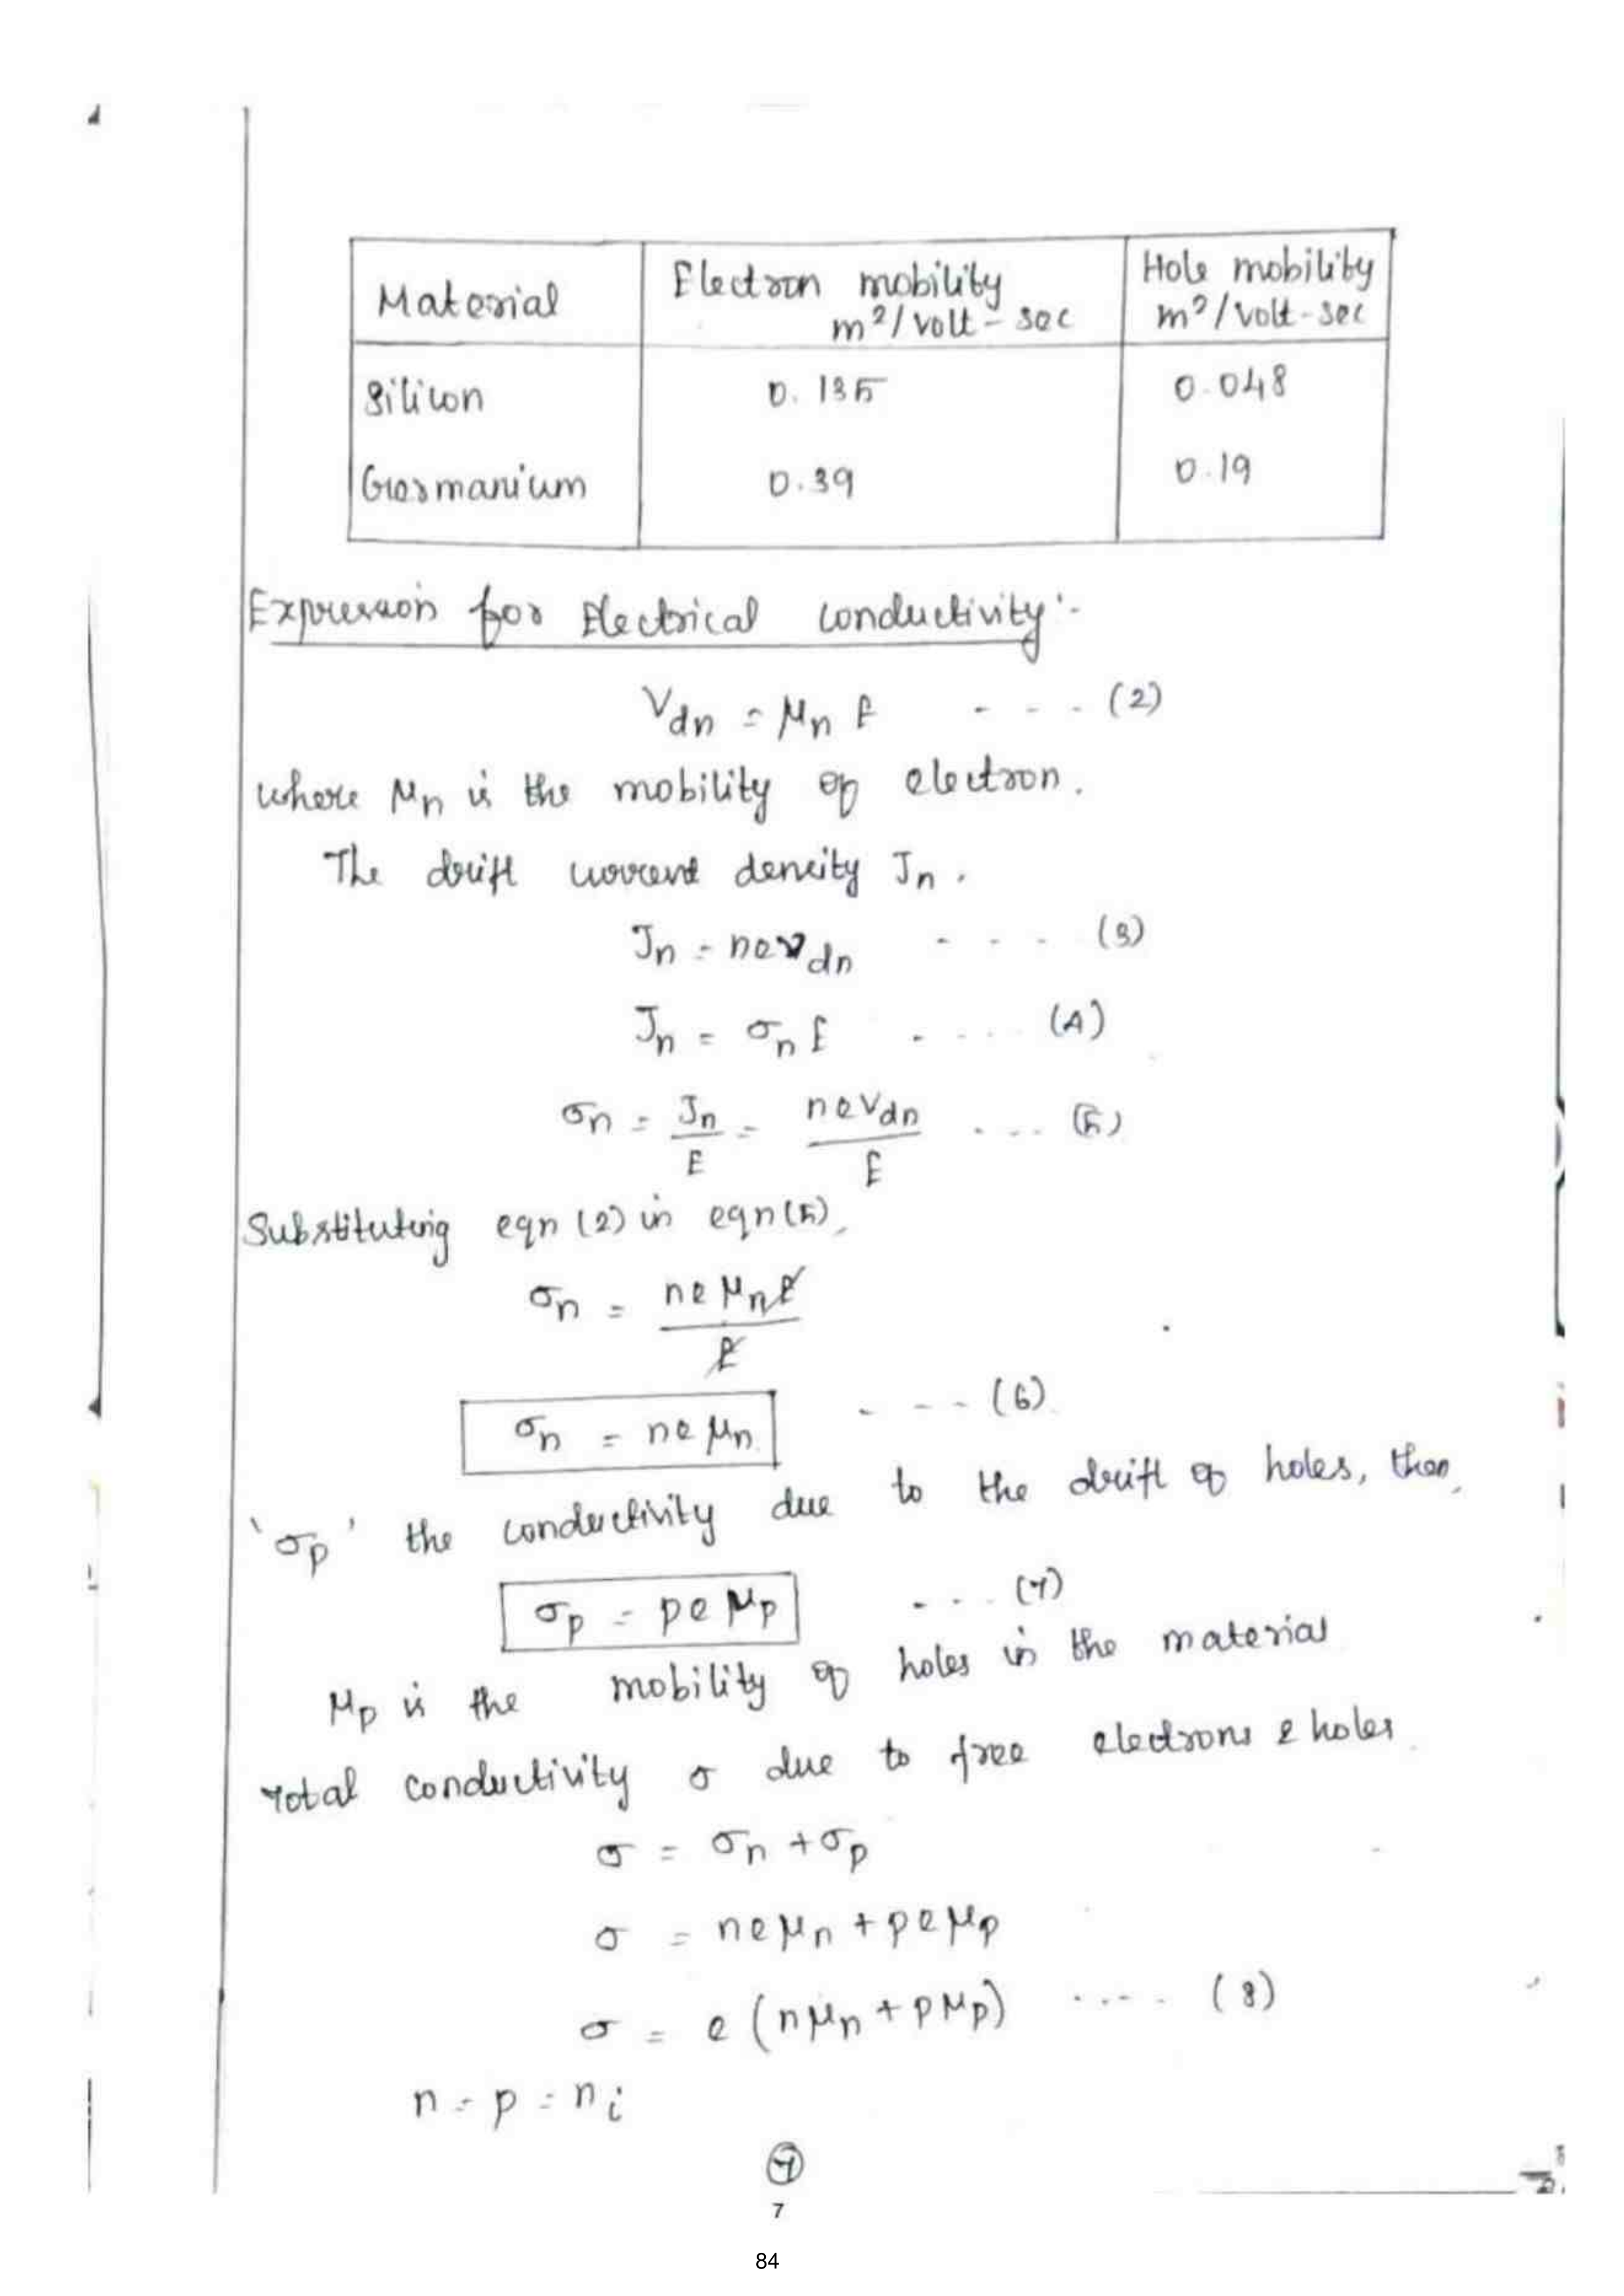 Material Electron mobility m²/volt-sec Hole mobility m²/volt-sec
Silicon 0.135 0.048
Germanium 0.39 0.19
Expression for Electrical conductivity:-
Vdn = μn E - - - (2)
where μn is the mobility of electron.
The drift current density Jn.
Jn = nevdn - - - - (3)
Jn = σn E - - - - (4)
σn = Jn/E = nevdn/E - - - - (5)
Substituting eqn (2) in eqn (5),
σn = neμnE/E
σn = neμn - - - - (6)
'σp' the conductivity due to the drift of holes, then,
σp = peμp - - - (7)
μp is the mobility of holes in the material
Total conductivity σ due to free electrons & holes.
σ = σn + σp
σ = neμn + peμp
σ = e (nμn + pμp) ..... (8)
n = p = ni
7
7
84